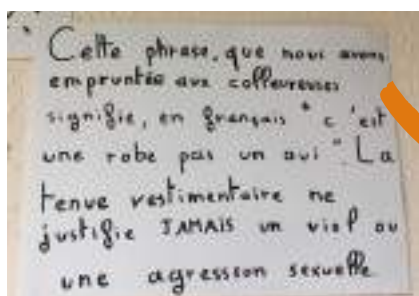 Cette phrase, que nous avons
empruntée aux colleureuses
signifie, en français "c'est
une robe pas un oui". La
tenue vestimentaire ne
justifie JAMAIS un viol ou
une agression sexuelle